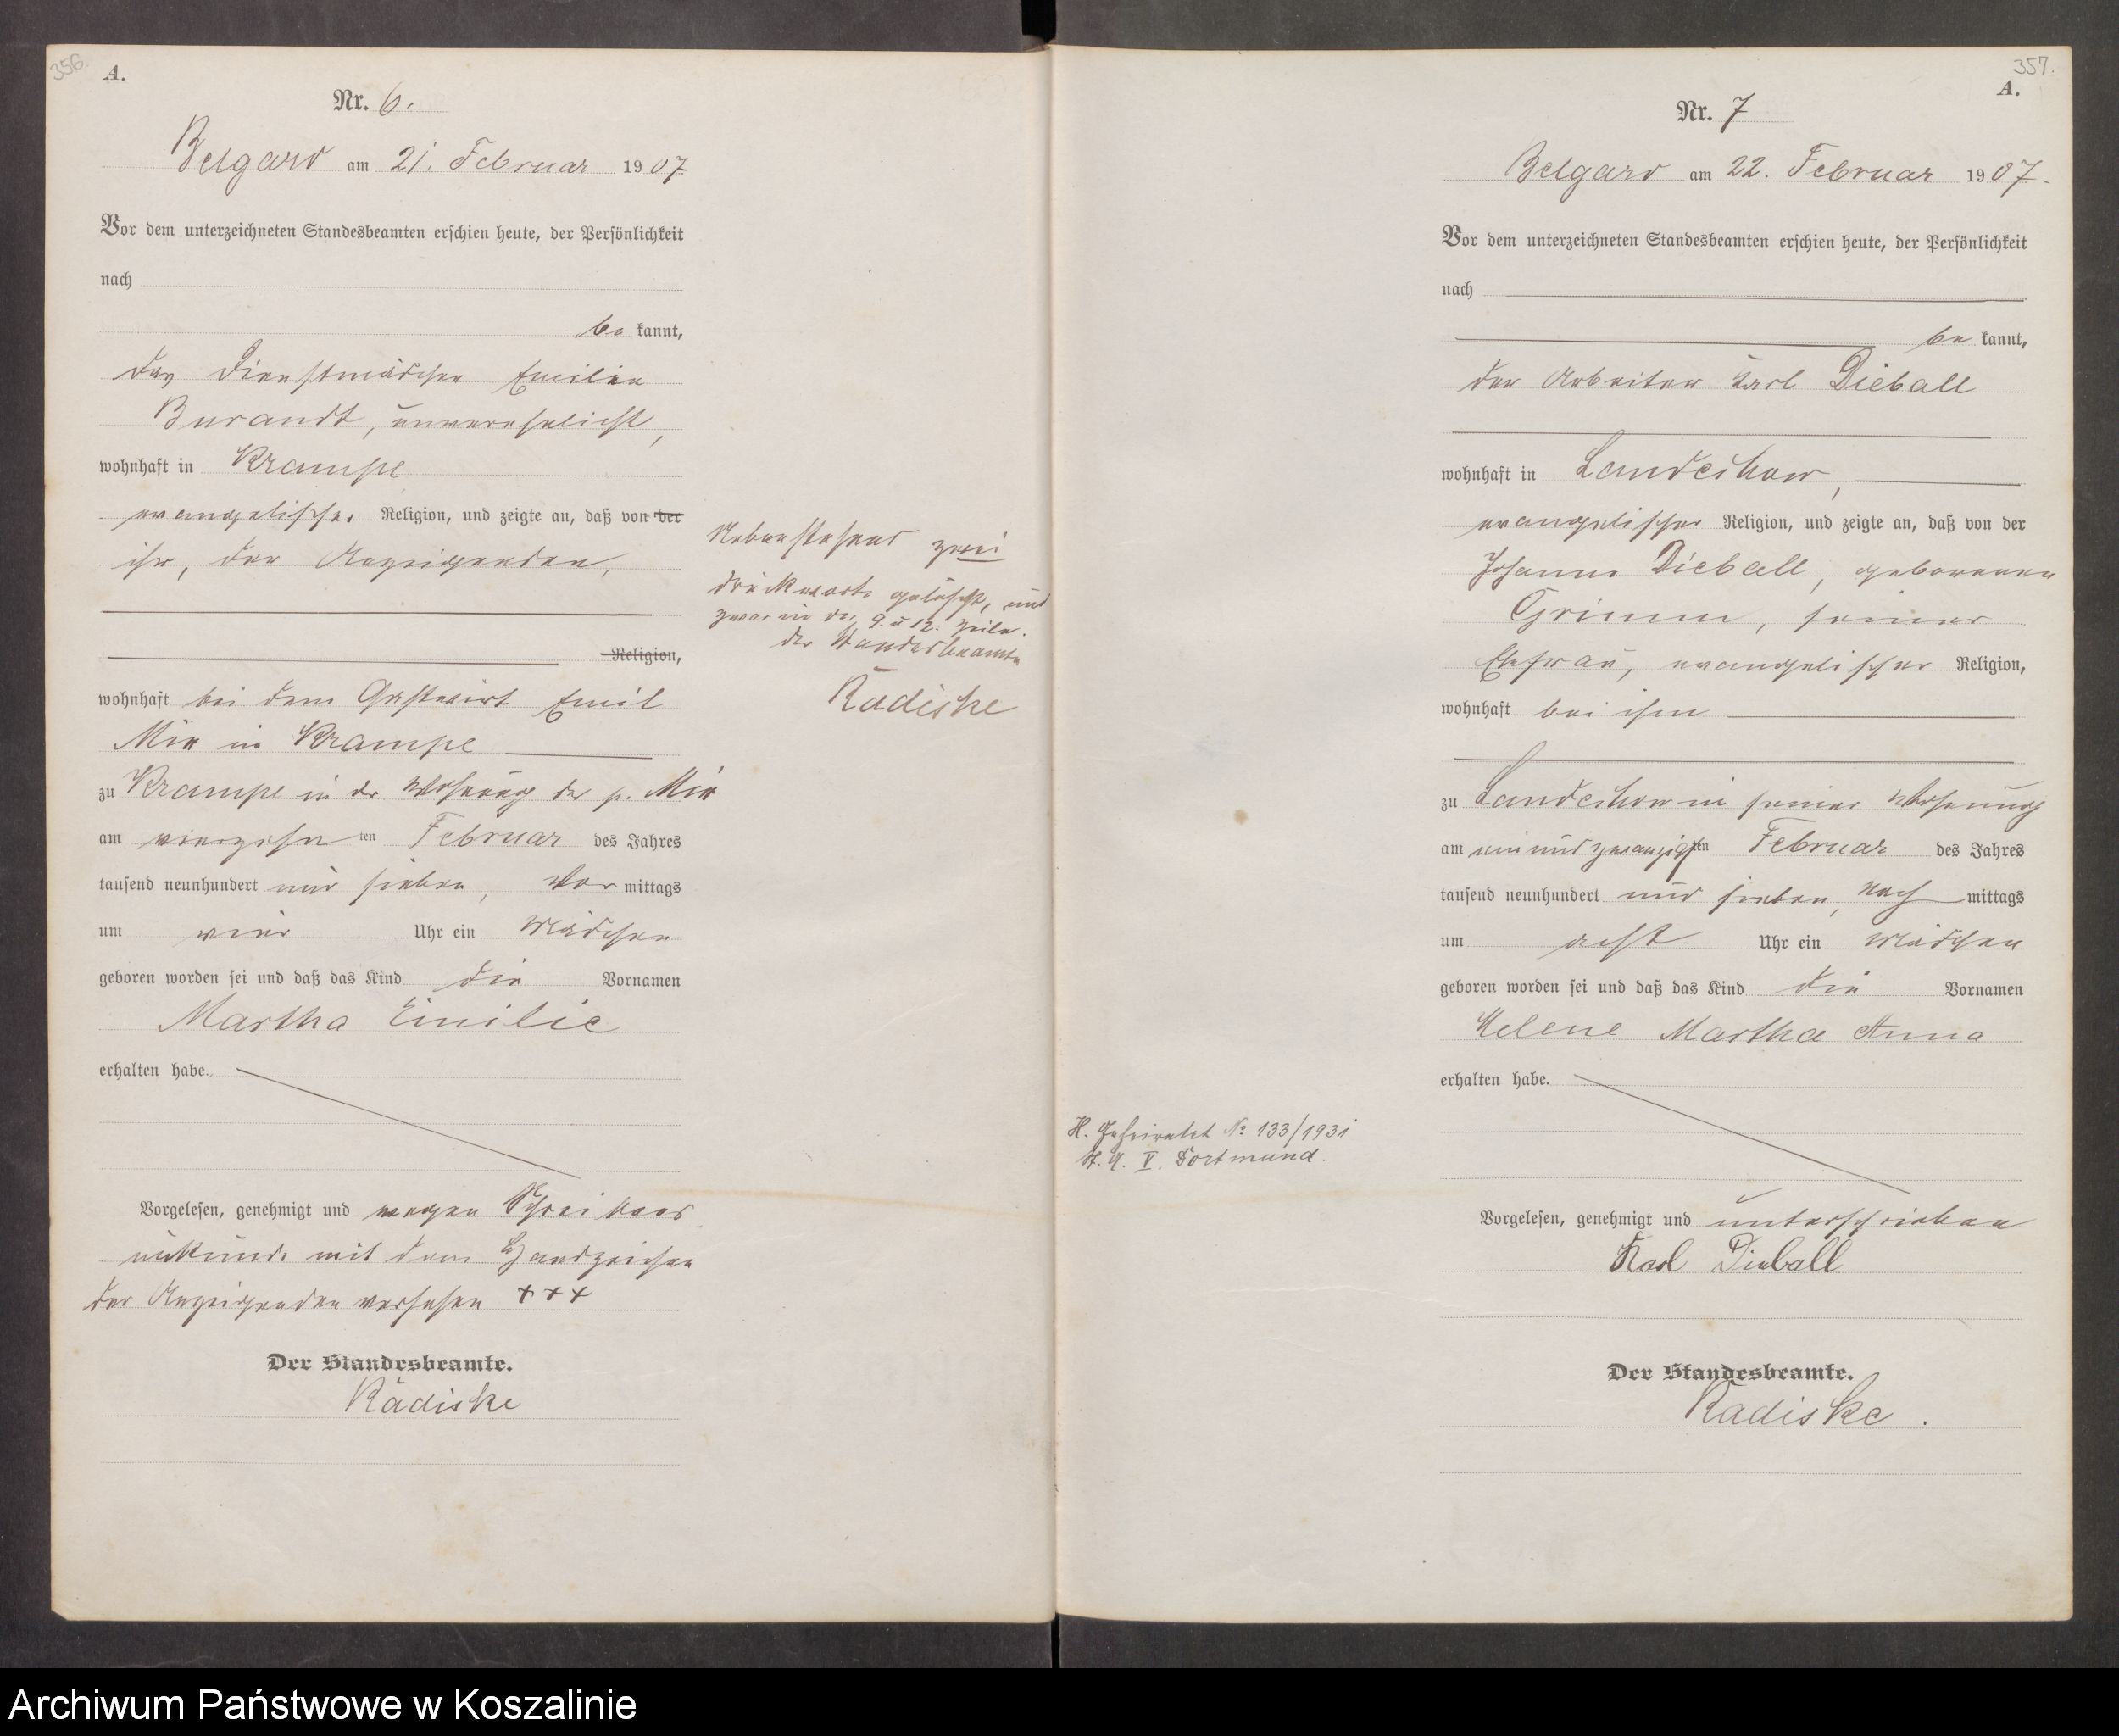 356.
A.
Nr. 6.
Belgard am 21. Februar 1907
Vor dem unterzeichneten Standesbeamten erschien heute, der Persönlichkeit
nach
be kannt,
das Dienstmädchen Emilie
Burandt, unverehelicht,
wohnhaft in Krampe
evangelischer Religion, und zeigte an, daß von der
ihr, der Anzeigenden,
Religion,
wohnhaft bei dem Gastwirt Emil
in Krampe
zu Krampe in der Wohnung des p.
am vierzehn ten Februar des Jahres
tausend neunhundert und sieben, Vor mittags
um vier Uhr ein Mädchen
geboren worden sei und daß das Kind die Vornamen
Martha Emilie
erhalten habe.
Vorgelesen, genehmigt und wegen Schreibens
unkunde mit dem Handzeichen
der Anzeigenden versehen + + +
Der Standesbeamte.
Radiske
Nebenstehend zwei
Druckworte gelöscht, und
zwar in der 9. u 12. Zeile.
Der Standesbeamte
Radiske
357.
A.
Nr. 7
Belgard am 22. Februar 1907.
Vor dem unterzeichneten Standesbeamten erschien heute, der Persönlichkeit
nach
be kannt,
der Arbeiter Karl Dieball
wohnhaft in Landechow,
evangelischer Religion, und zeigte an, daß von der
Johanne Dieball, geborenen
Grimm, seiner
Ehefrau, evangelischer Religion,
wohnhaft bei ihm
zu Landechow in seiner Wohnung
am einundzwanzigsten Februar des Jahres
tausend neunhundert und sieben, nach mittags
um acht Uhr ein Mädchen
geboren worden sei und daß das Kind die Vornamen
Helene Martha Anna
erhalten habe.
H. Geheiratet No 133/1931
St. A. V. Dortmund.
Vorgelesen, genehmigt und unterschrieben
Karl Dieball
Der Standesbeamte.
Radiske.
Archiwum Państwowe w Koszalinie